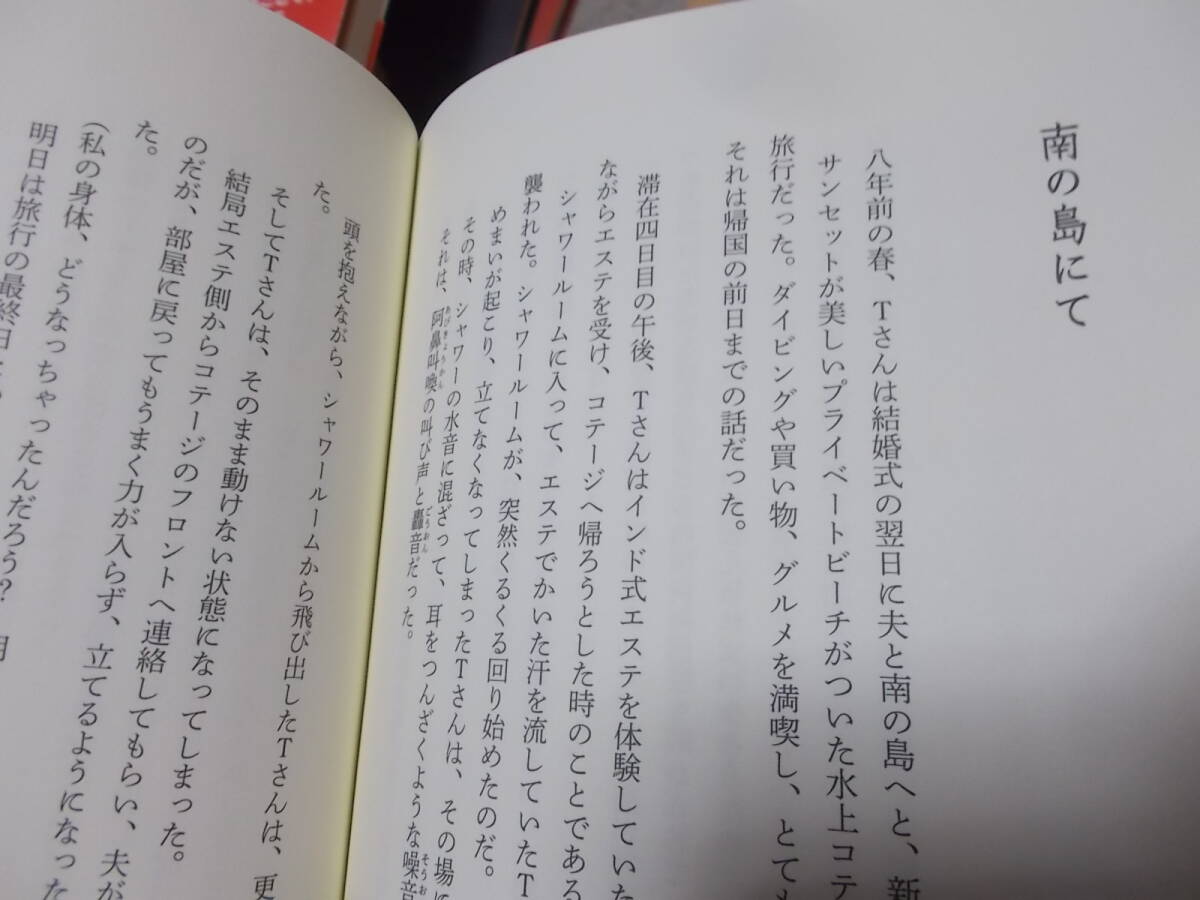 南の島にて
八年前の春、Tさんは結婚式の翌日に夫と南の島へと、新
サンセットが美しいプライベートビーチがついた水上コテ
旅行だった。ダイビングや買い物、グルメを満喫し、とても
それは帰国の前日までの話だった。
滞在四日目の午後、Tさんはインド式エステを体験していた
ながらエステを受け、コテージへ帰ろうとした時のことである
シャワールームに入って、エステでかいた汗を流していたT
襲われた。シャワールームが、突然くるくる回り始めたのだ。
めまいが起こり、立てなくなってしまったTさんは、その場に
その時、シャワーの水音に混ざって、耳をつんざくような噪音
それは、阿鼻叫喚の叫び声と轟音だった。
頭を抱えながら、シャワールームから飛び出したTさんは、更
た。
そしてTさんは、そのまま動けない状態になってしまった。
結局エステ側からコテージのフロントへ連絡してもらい、夫が
のだが、部屋に戻ってもうまく力が入らず、立てるようになった
た。
(私の身体、どうなっちゃったんだろう?
明日は旅行の最終日